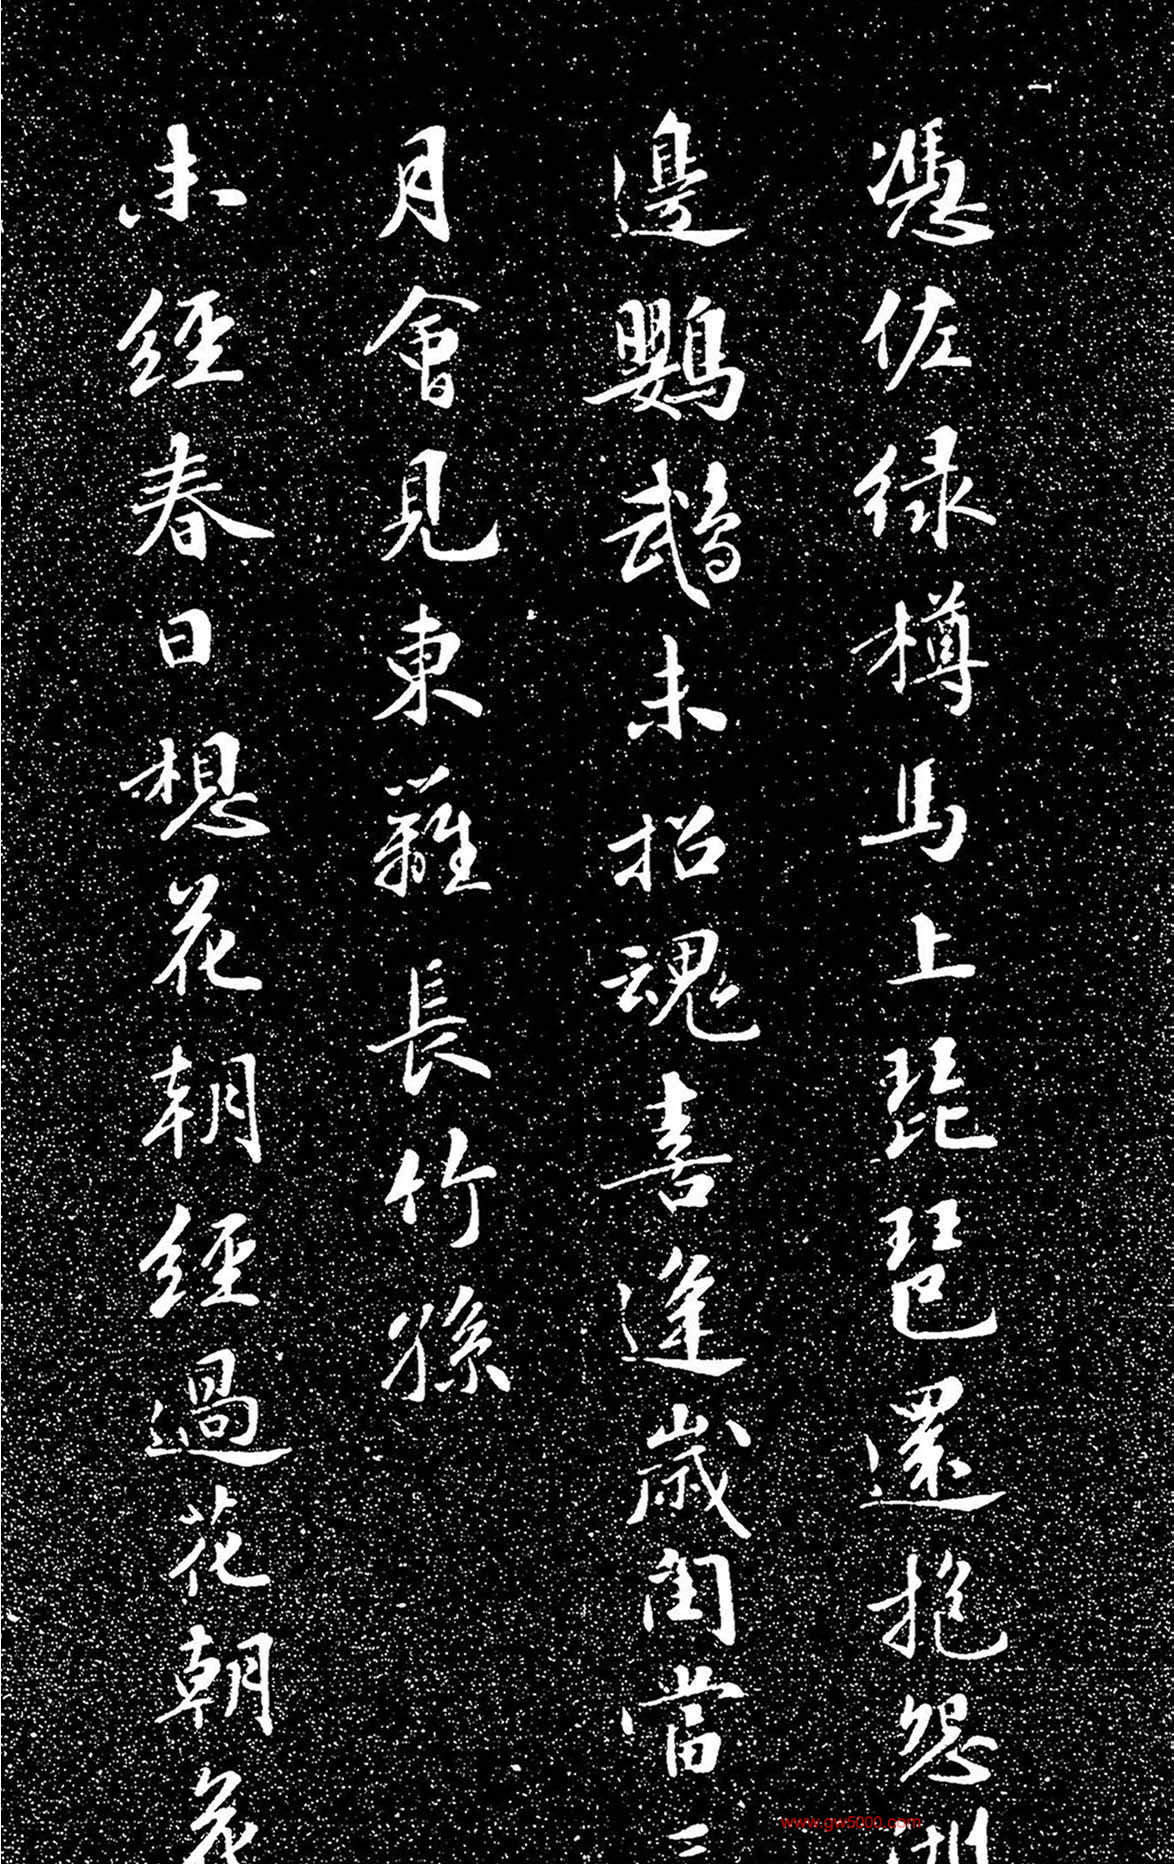 憑佐绿樽馬上琵琶還抱怨洲
邊鸚鵡未招魂喜逢歲閏當三
月會見東籬長竹孫
未經春日想花朝經過花朝花
www.gw5000.com